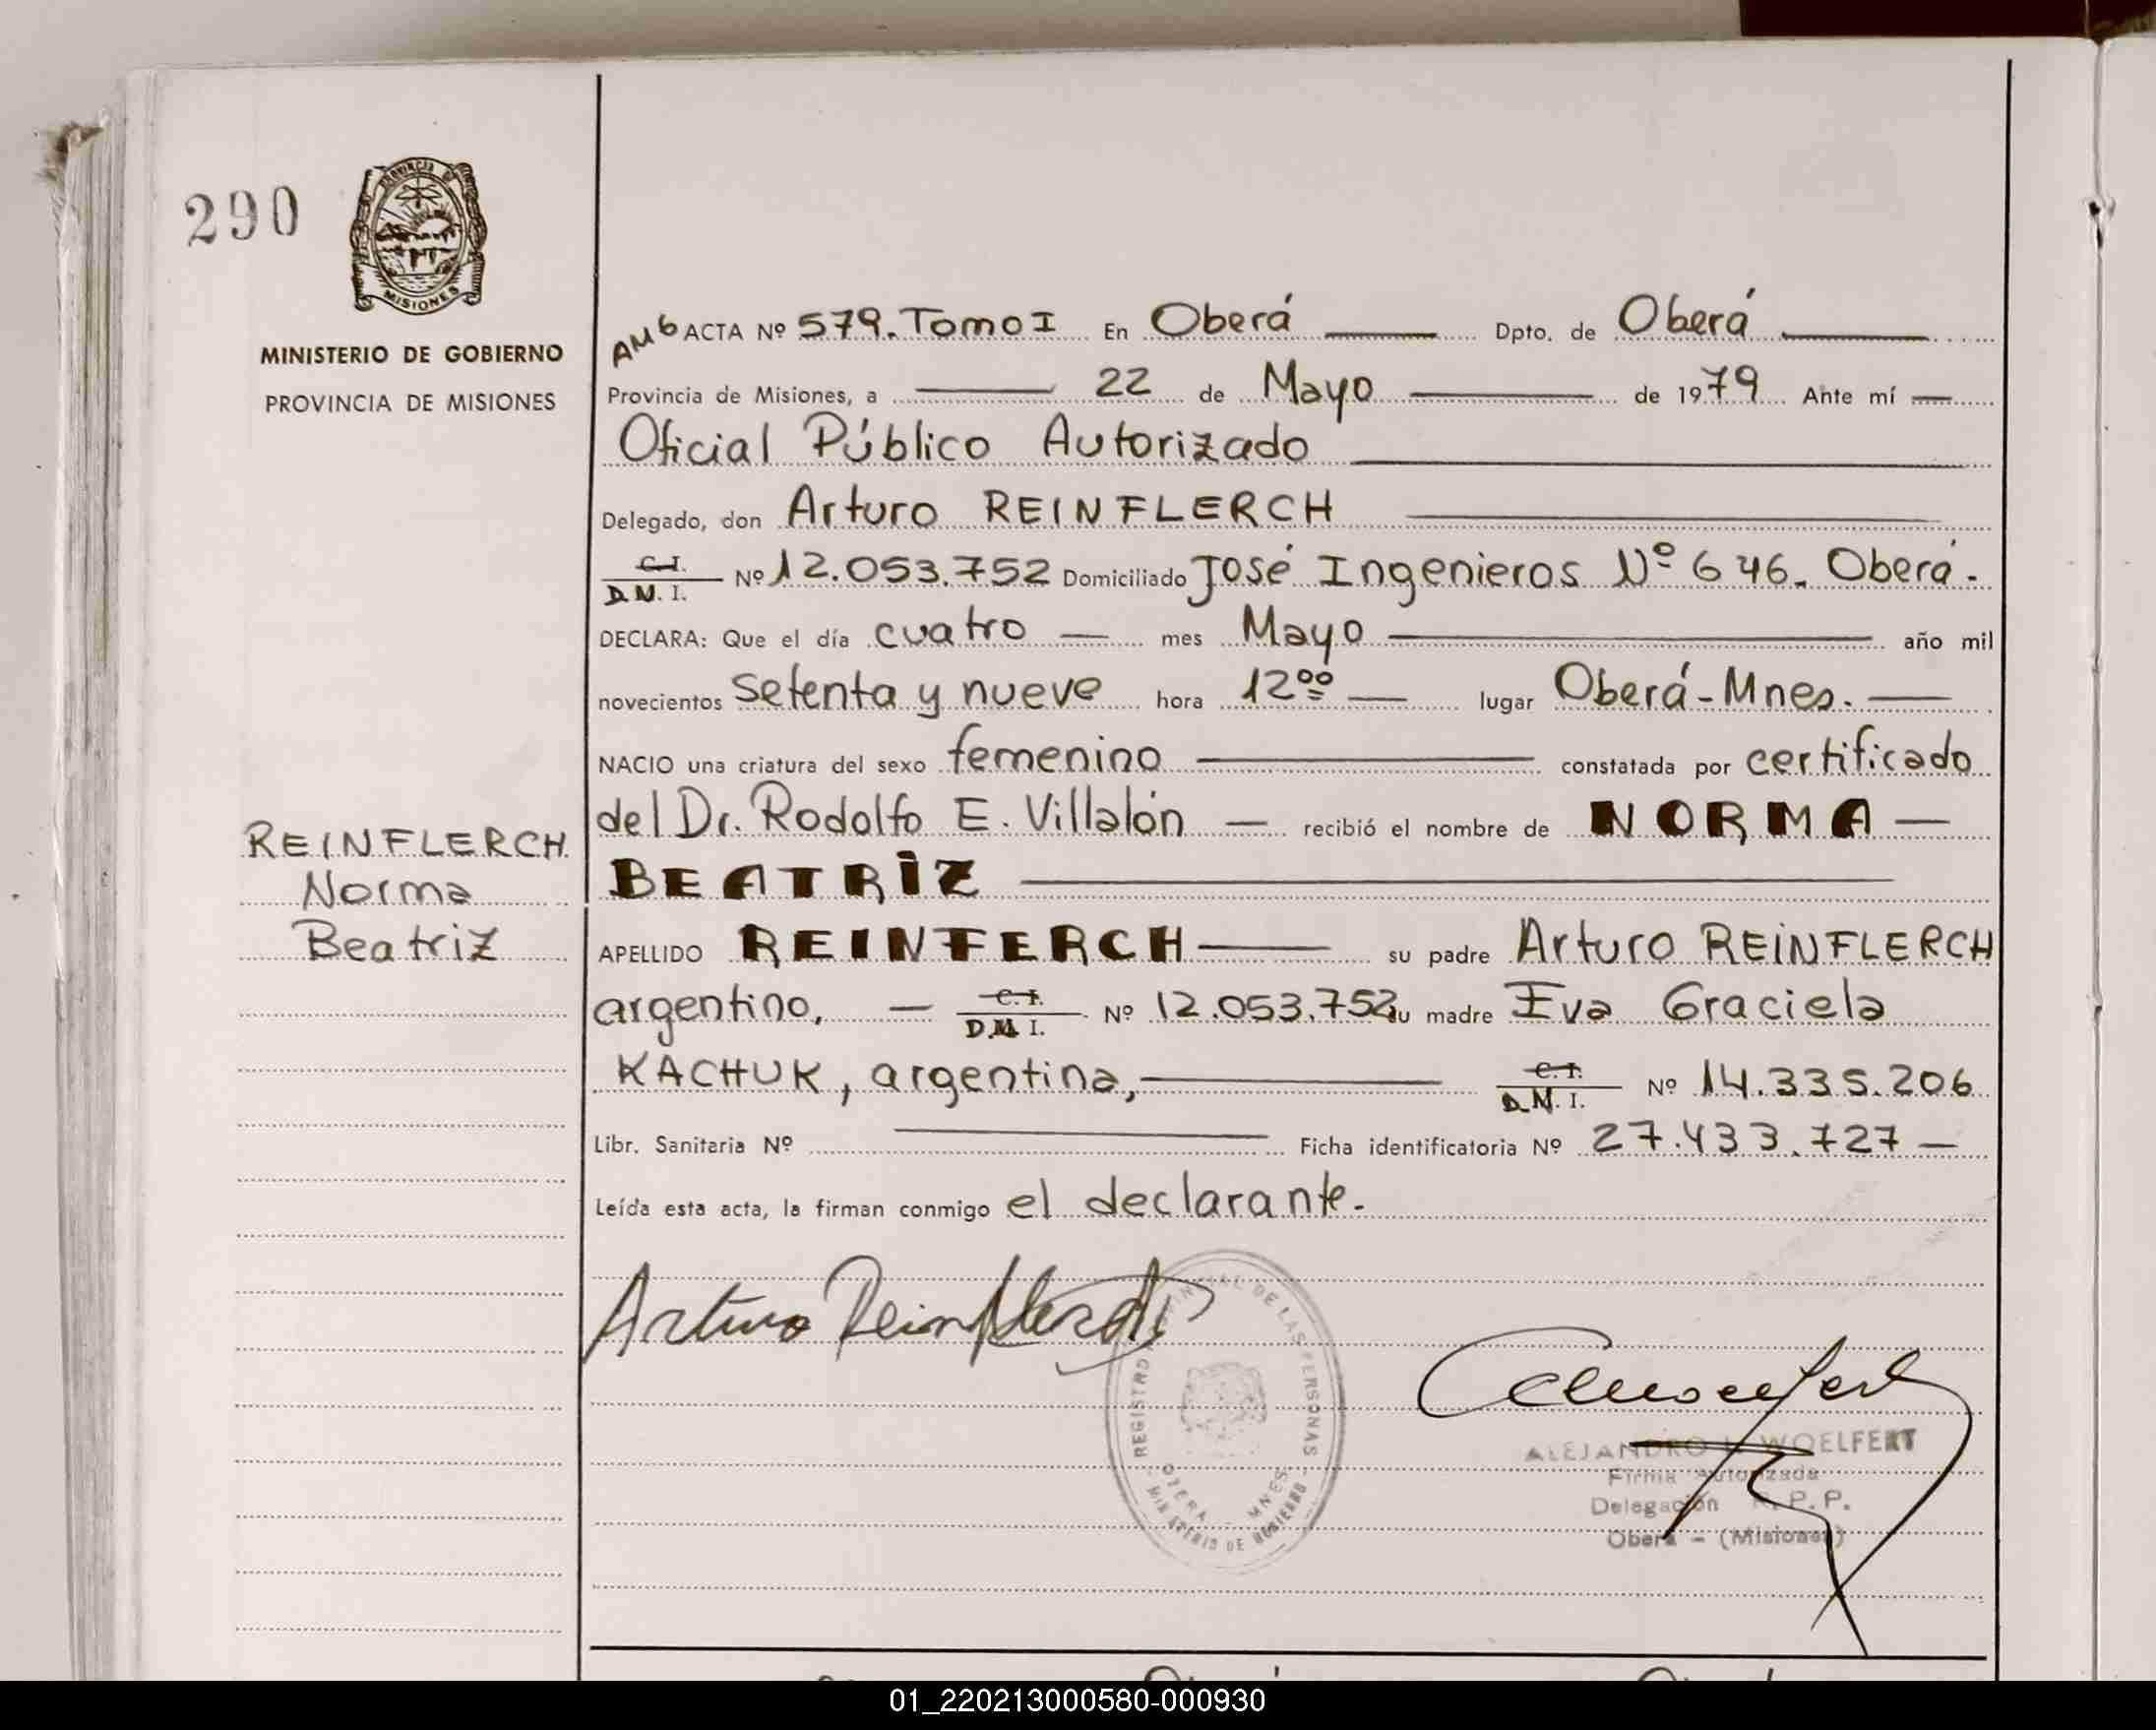 290
PROVINCIA DE
MISIONES
MINISTERIO DE GOBIERNO
PROVINCIA DE MISIONES
REINFLERCH
Norma
Beatriz
AM6 ACTA Nº 579. Tomo I En Oberá Dpto. de Oberá
Provincia de Misiones, a 22 de Mayo de 1979 Ante mí
Oficial Público Autorizado
Delegado, don Arturo REINFLERCH
C.I. D.N.I. Nº 12.053.752 Domiciliado José Ingenieros Nº 646. Oberá.
DECLARA: Que el día cuatro mes Mayo año mil
novecientos setenta y nueve hora 12ºº lugar Oberá-Mnes.
NACIO una criatura del sexo femenino constatada por certificado
del Dr. Rodolfo E. Villalón recibió el nombre de NORMA
BEATRIZ
APELLIDO REINFERCH su padre Arturo REINFLERCH
argentino, C.I. D.N.I. Nº 12.053.752 su madre Eva Graciela
KACHUK, argentina, C.I. D.N.I. Nº 14.335.206
Libr. Sanitaria Nº Ficha identificatoria Nº 27.433.727
Leída esta acta, la firman conmigo el declarante.
Arturo Reinflerch
REGISTRO PROVINCIAL DE LAS PERSONAS
OBERA - MNES
MINISTERIO DE GOBIERNO
ALEJANDRO WOELFERT
Firma Autorizada
Delegación R.P.P.
Oberá - (Misiones)
01_220213000580-000930